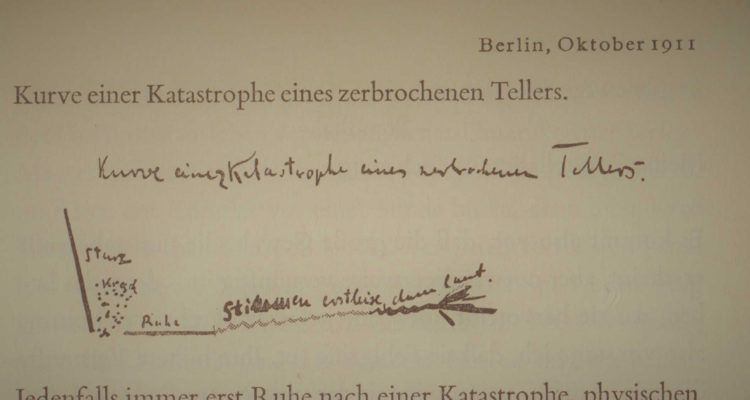 Berlin, Oktober 1911
Kurve einer Katastrophe eines zerbrochenen Tellers.
Kurve einer Katastrophe eines zerbrochenen Tellers.
Sturz
Krach
Ruhe
Stimmen erst leise, dann laut.
Jedenfalls immer erst Ruhe nach einer Katastrophe, physischen